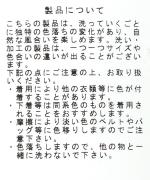 製品について
こちらの製品は、洗っていくごと
に独特の色落ちの変化があり、自
然な風合いを楽しめます。洗い
加工の製品は、一つ一つサイズや
色合いの違いが出ることがござい
ます。
下記の点にご注意の上、お取り扱
いください。
・着用により他の衣類等に色が付
着することがあります。
・下着等は同系色のものを着用さ
れることをおすすめします。
・摩擦により淡い色のベルトやバ
ッグ等に色移りしますのでご注意
下さい。
・色落ちしますので、他の物と一
緒に洗わないで下さい。